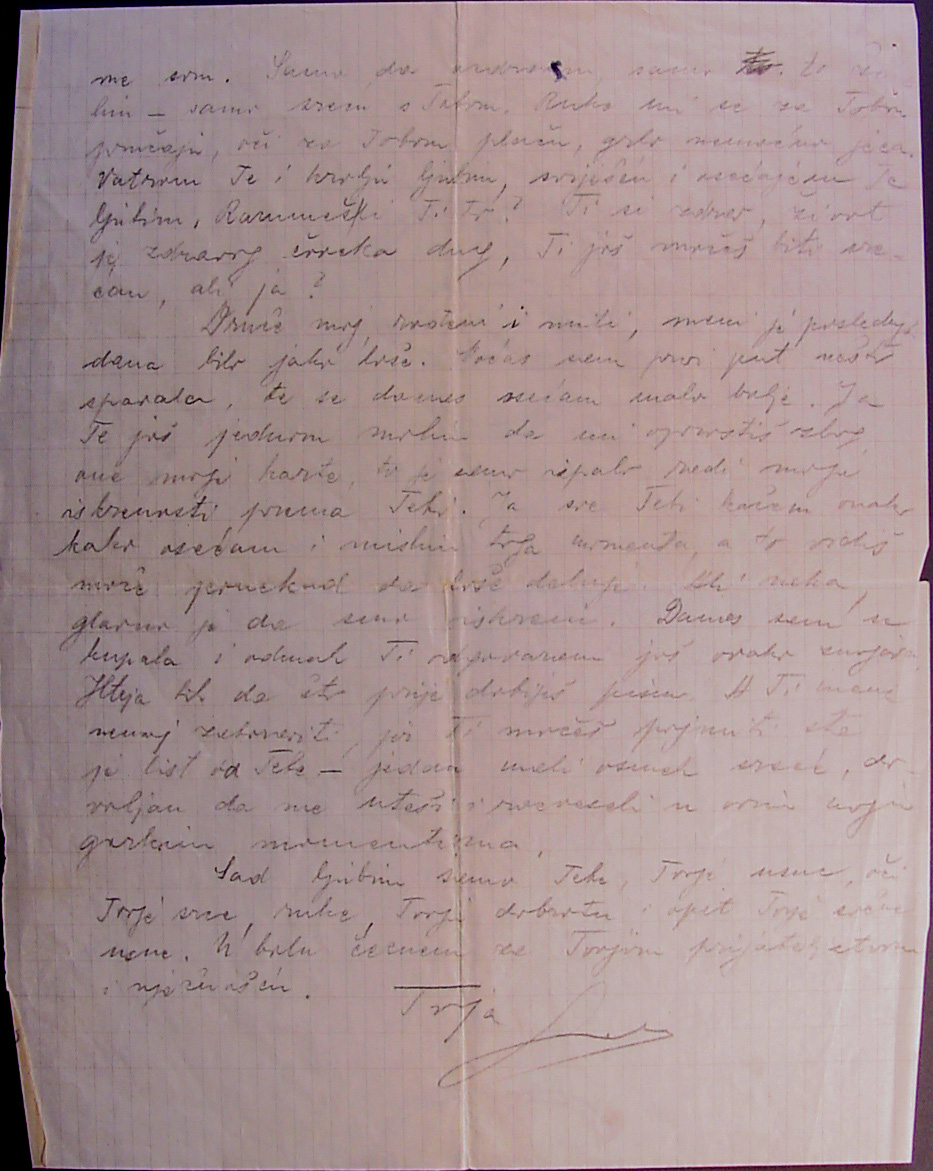 me srm. Samo da ozdravim samo to. to že
lim – samo sreću s Tobom. Ruke mi se za Tobom
pružaju, oči za Tobom plaču, grlo nemoćno ječa.
Vatrom Te i krvlju ljubim, sviješću i osećajem Te
ljubim, Razumeš li Ti to? Ti si zdrav, život
je zdravog čoveka dug, Ti još možeš biti sre-
ćan, ali ja?
Druže moj, rođeni i mili, meni je poslednjih
dana bilo jako loše. Noćas sam prvi put nešto
spavala, te se danas osećam malo bolje. Ja
Te još jednom molim da mi oprostiš zbog
one moje karte, to je samo ispalo radi moje
iskrenosti prema Tebi. Ja sve Tebi kažem onako
kako osećam i mislim toga momenta, a to vidiš
može ponekad da loše deluje. Ali neka,
glavno je da smo iskreni. Danas sam se
kupala i odmah Ti odgovaram još ovako
Htjela bih da što prije dobiješ pismo. A Ti mene
nemoj zaboraviti, jer Ti možeš pojmiti šta
je list od Tebe – jedan mali osmeh sreće, do-
voljan da me uteši i razveseli u ovim mojim
gorkim momentima.
Sad ljubim samo Tebe, Tvoje usne, oči
Tvoje srce, ruke, Tvoju dobrotu i opet Tvoje
usne. U bolu čeznem za Tvojim prijateljstvom
i nježnošću.
Tvoja